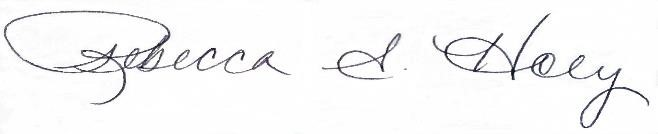 Rebecca S. Hoey